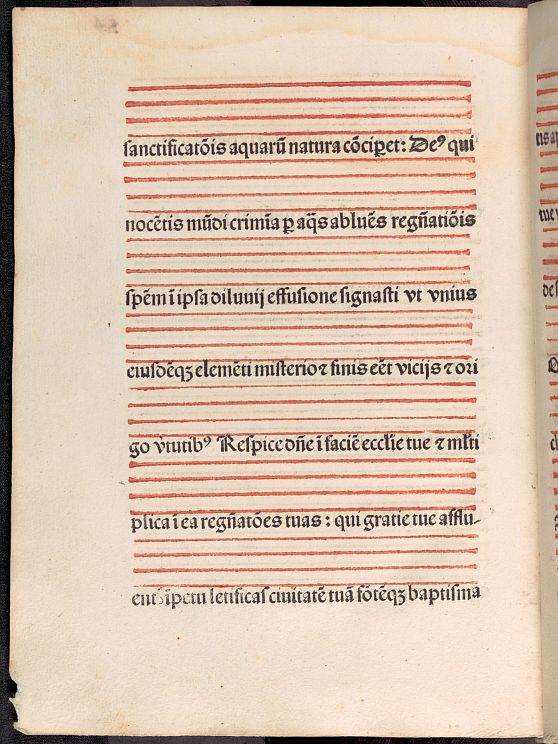 sanctificatõis aquarũ natura cõciꝑet: Deꝰ qui
nocẽtis mũdi crimĩa ꝑ aq̃s abluẽs regñatiõis
spẽm ĩ ipsa diluuij effusione signasti vt vnius
eiusdẽqꝫ elemẽti misterio ⁊ finis eẽt vicijs ⁊ ori
go v̓tutibꝰ Respice dñe ĩ faciẽ eccl̃ie tue ⁊ ml̃ti
plica ĩ ea regñatões tuas: qui gratie tue afflu-
ĩpetu letificas ciuitatẽ tuã fõtẽqꝫ baptisma